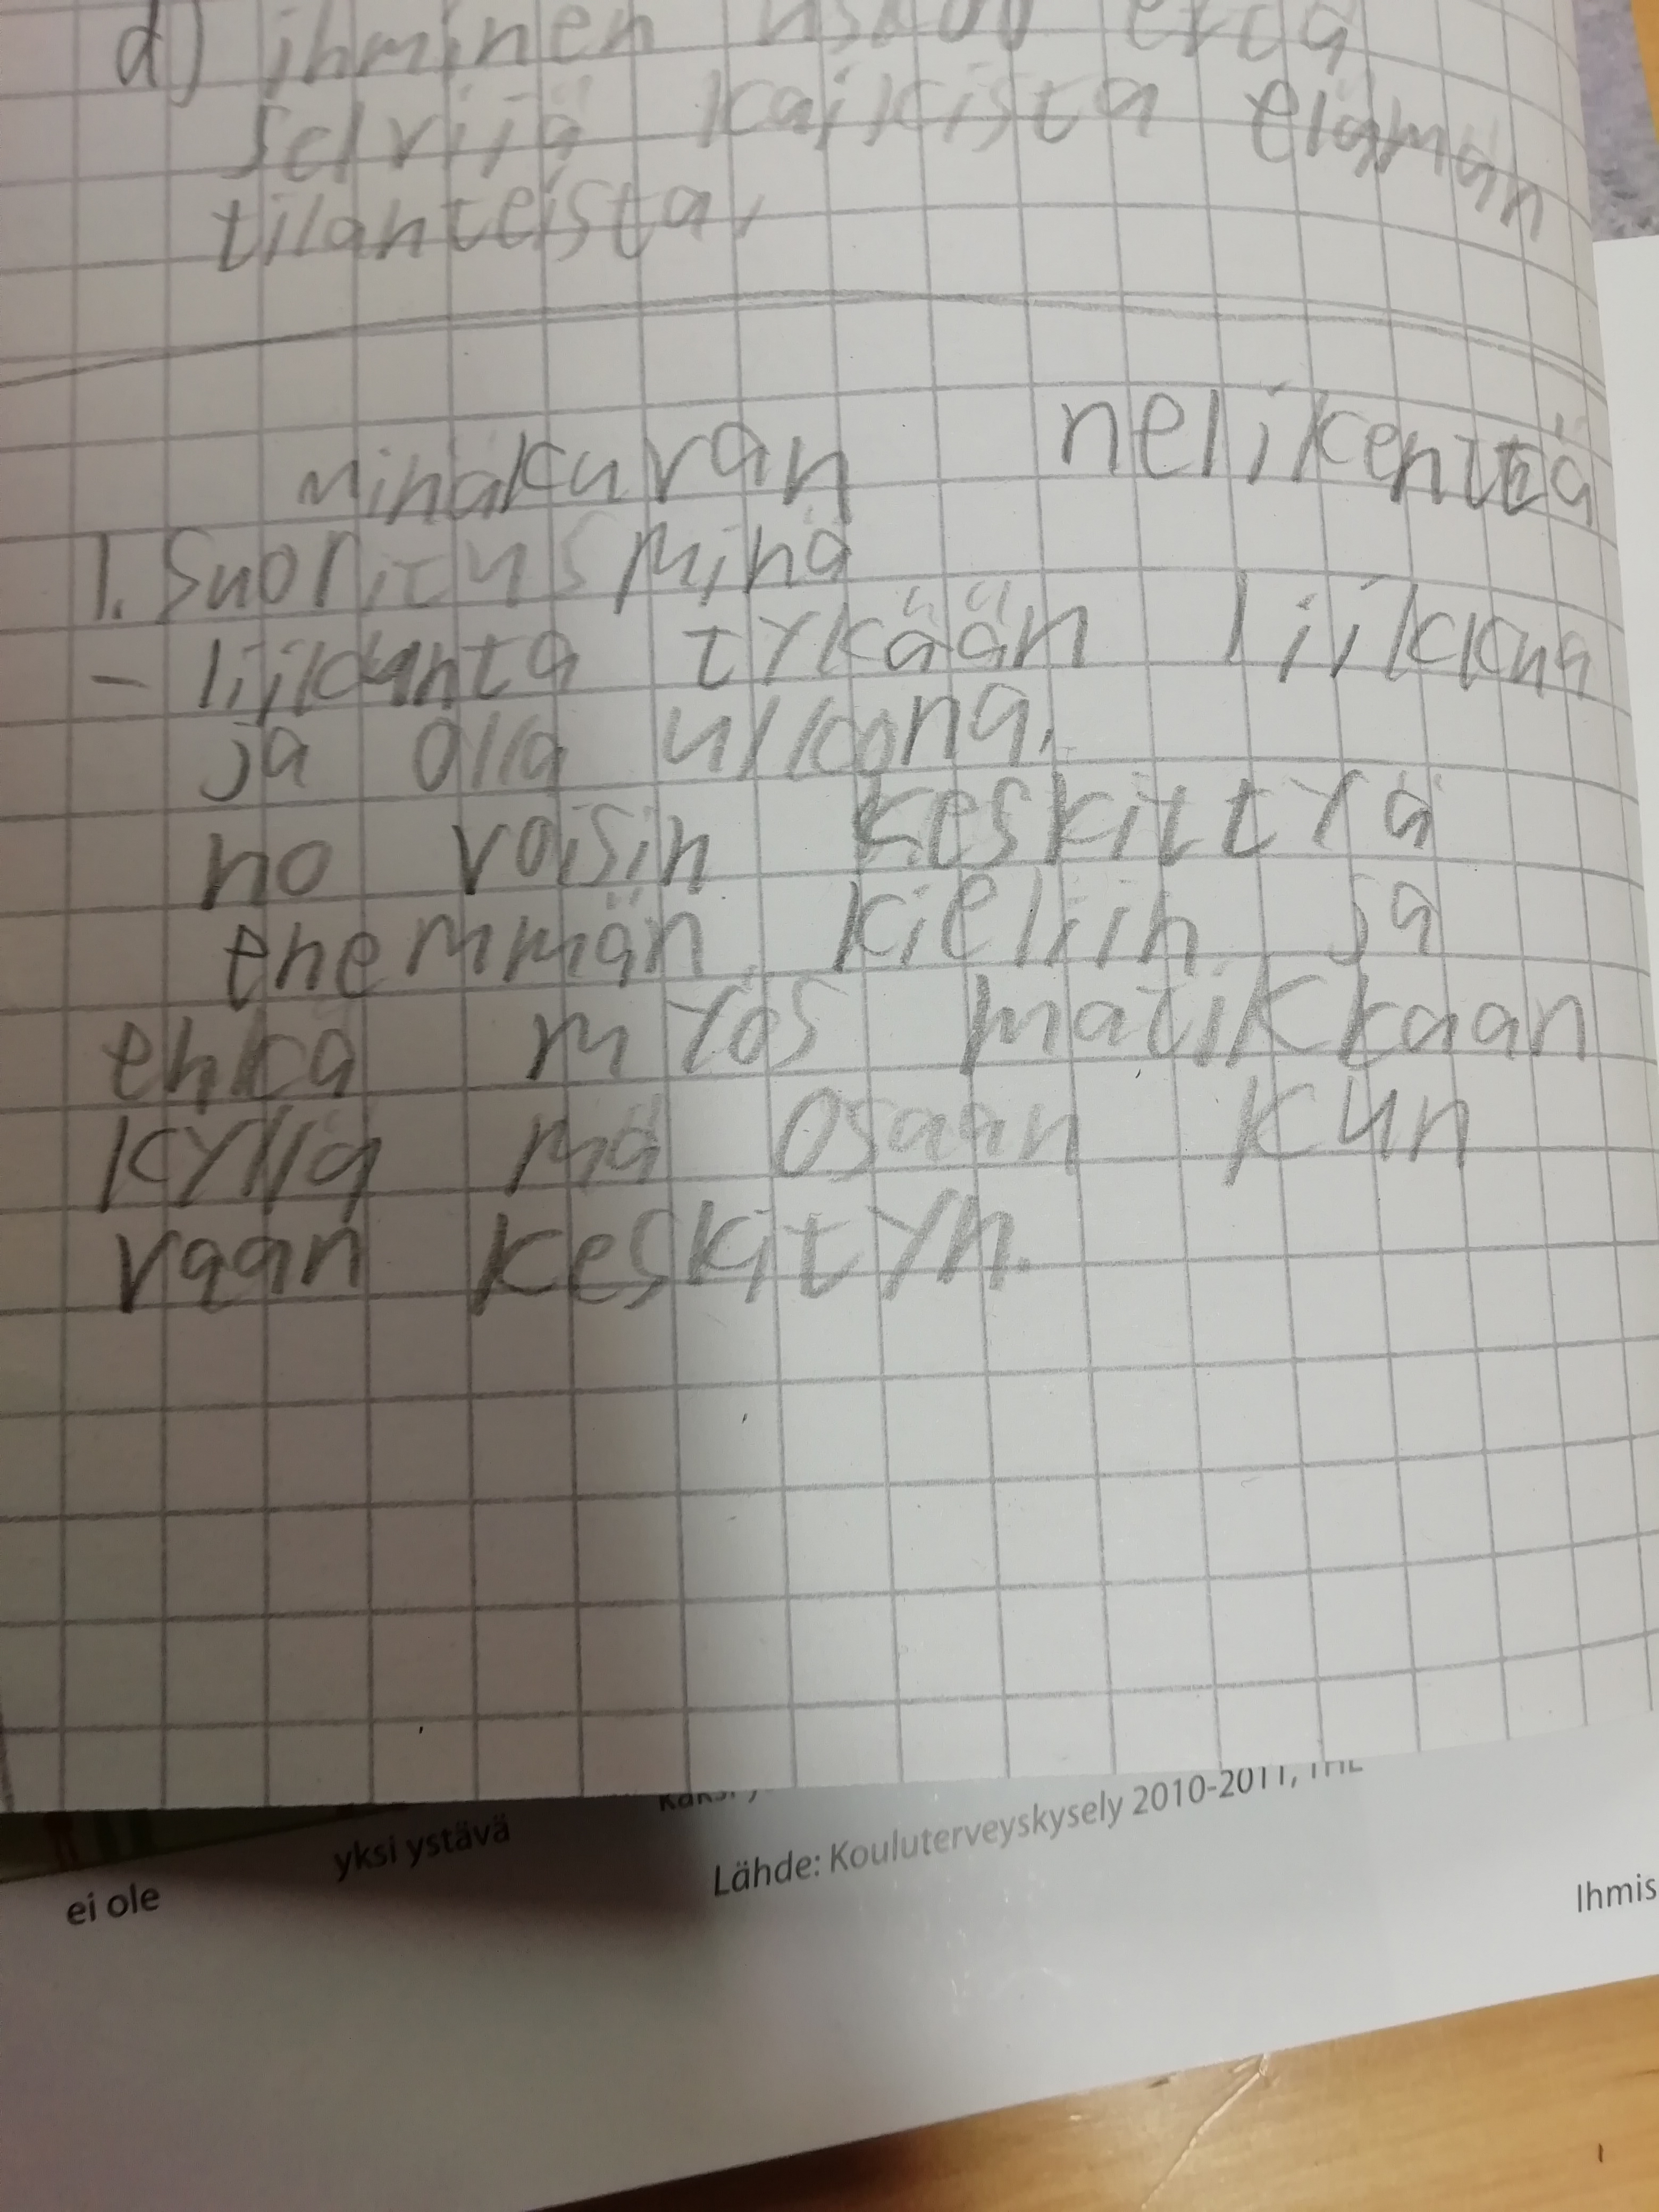 d) ihminen uskoo että
selviiä kaikista elämän
tilanteista.
minäkuvan nelikenttä
1. Suoritus minä
- liikunta tykään liikkua
ja olla ulkona.
no voisin keskittyä
enemmän kieliin ja
ehkä myös matikkaan
kyllä mä osaan kun
vaan keskityn.
yksi ystävä
ei ole
Lähde: Kouluterveyskysely 2010-2011, THL